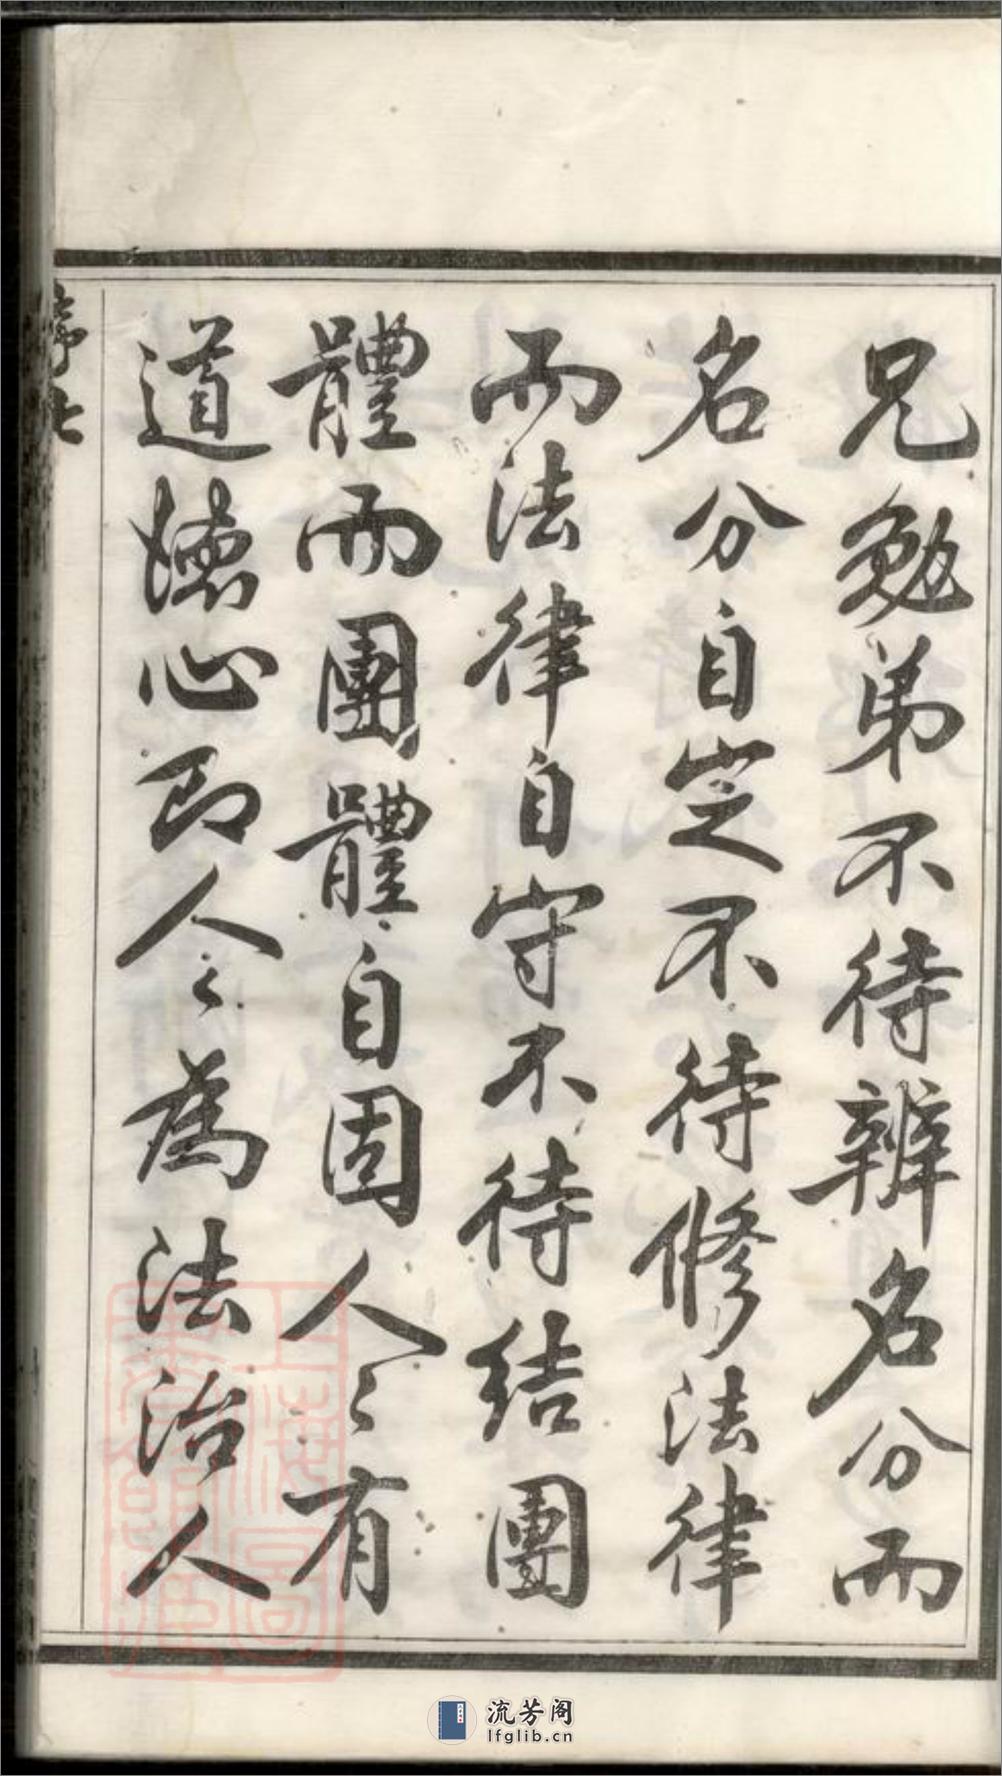 兄勉弟不待辨名分而
名分自定不待修法律
而法律自守不待結團
體而團體自固人々有
道德心即人々為法治人
序七
流芳阁
lfglib.cn